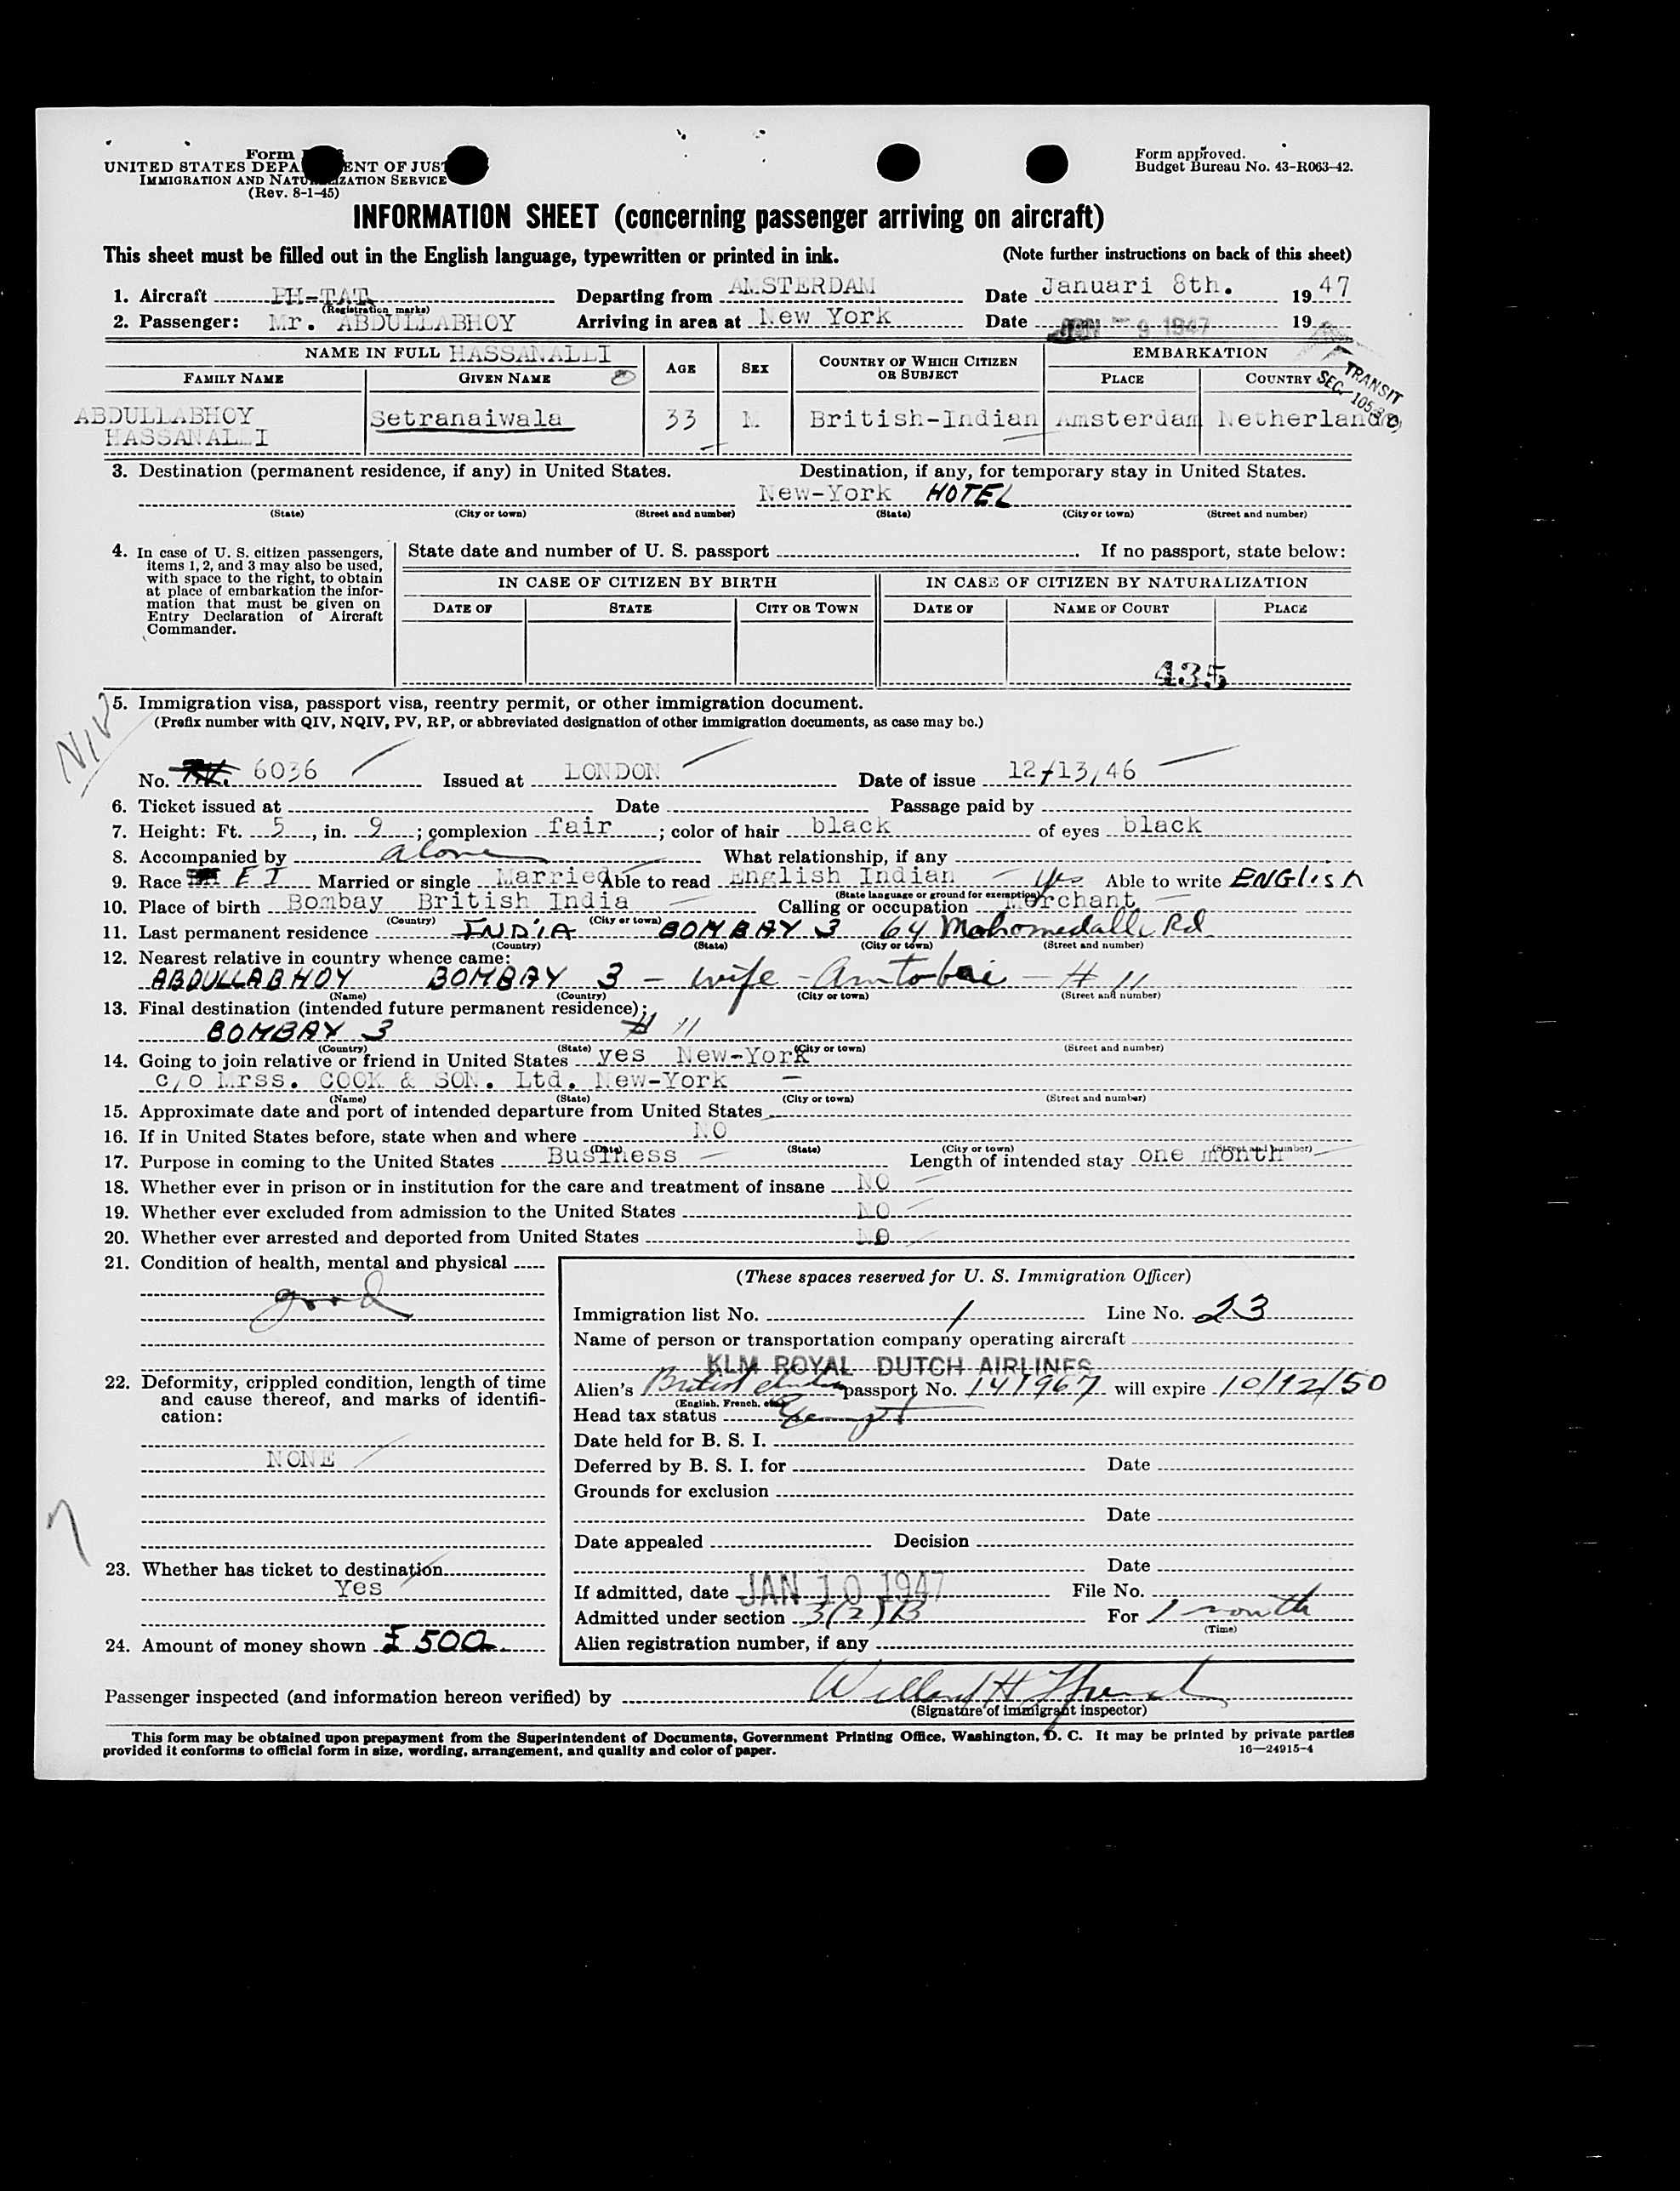 Form
UNITED STATES DEPA ENT OF JUST
IMMIGRATION AND NATU IZATION SERVICE
(Rev. 8-1-45)
Form approved.
Budget Bureau No. 43-R063-42.
INFORMATION SHEET (concerning passenger arriving on aircraft)
This sheet must be filled out in the English language, typewritten or printed in ink. (Note further instructions on back of this sheet)
1. Aircraft PH-TAT Departing from AMSTERDAM Date Januari 8th. 1947
(Registration marks)
2. Passenger: Mr. ABDULLABHOY Arriving in area at New York Date JAN - 9 1947 19
NAME IN FULL HASSANALLI AGE SEX COUNTRY OF WHICH CITIZEN OR SUBJECT EMBARKATION
FAMILY NAME GIVEN NAME PLACE COUNTRY
TRANSIT
SEC. 105.3
ABDULLABHOY HASSANALLI Setranaiwala 33 M British-Indian Amsterdam Netherlands
3. Destination (permanent residence, if any) in United States. Destination, if any, for temporary stay in United States.
New-York HOTEL
(State) (City or town) (Street and number) (State) (City or town) (Street and number)
4. In case of U. S. citizen passengers, items 1, 2, and 3 may also be used, with space to the right, to obtain at place of embarkation the information that must be given on Entry Declaration of Aircraft Commander.
State date and number of U. S. passport If no passport, state below:
IN CASE OF CITIZEN BY BIRTH IN CASE OF CITIZEN BY NATURALIZATION
DATE OF STATE CITY OR TOWN DATE OF NAME OF COURT PLACE
435
NIV
5. Immigration visa, passport visa, reentry permit, or other immigration document.
(Prefix number with QIV, NQIV, PV, RP, or abbreviated designation of other immigration documents, as case may be.)
No. 6036 Issued at LONDON Date of issue 12/13/46
6. Ticket issued at Date Passage paid by
7. Height: Ft. 5, in. 9; complexion fair; color of hair black of eyes black
8. Accompanied by alone What relationship, if any
9. Race E I Married or single Married Able to read English Indian yes Able to write ENGLISH
(State language or ground for exemption)
10. Place of birth Bombay British India Calling or occupation Merchant
(Country) (City or town)
11. Last permanent residence INDIA BOMBAY 3 64 Mohomedalli Rd
(Country) (State) (City or town) (Street and number)
12. Nearest relative in country whence came:
ABDULLABHOY BOMBAY 3 - wife - Amtobai - # 11
(Name) (Country) (City or town) (Street and number)
13. Final destination (intended future permanent residence):
BOMBAY 3 # 11
(Country) (State) (City or town) (Street and number)
14. Going to join relative or friend in United States yes New-York
c/o Mrss. COOK & SON. Ltd. New-York
(Name) (State) (City or town) (Street and number)
15. Approximate date and port of intended departure from United States
16. If in United States before, state when and where NO
(Date) (State) (City or town) (Street and number)
17. Purpose in coming to the United States Business Length of intended stay one month
18. Whether ever in prison or in institution for the care and treatment of insane NO
19. Whether ever excluded from admission to the United States NO
20. Whether ever arrested and deported from United States NO
21. Condition of health, mental and physical
good
22. Deformity, crippled condition, length of time and cause thereof, and marks of identification:
NONE
23. Whether has ticket to destination
Yes
24. Amount of money shown £ 500
(These spaces reserved for U. S. Immigration Officer)
Immigration list No. 1 Line No. 23
Name of person or transportation company operating aircraft
KLM ROYAL DUTCH AIRLINES
Alien's British Indian passport No. 141967 will expire 10/12/50
(English, French, etc.)
Head tax status Exempt
Date held for B. S. I.
Deferred by B. S. I. for Date
Grounds for exclusion
Date
Date appealed Decision
Date
If admitted, date JAN 10 1947 File No.
Admitted under section 3(2)B For 1 month
(Time)
Alien registration number, if any
Passenger inspected (and information hereon verified) by
(Signature of immigrant inspector)
This form may be obtained upon prepayment from the Superintendent of Documents, Government Printing Office, Washington, D. C. It may be printed by private parties
provided it conforms to official form in size, wording, arrangement, and quality and color of paper. 16—24915-4